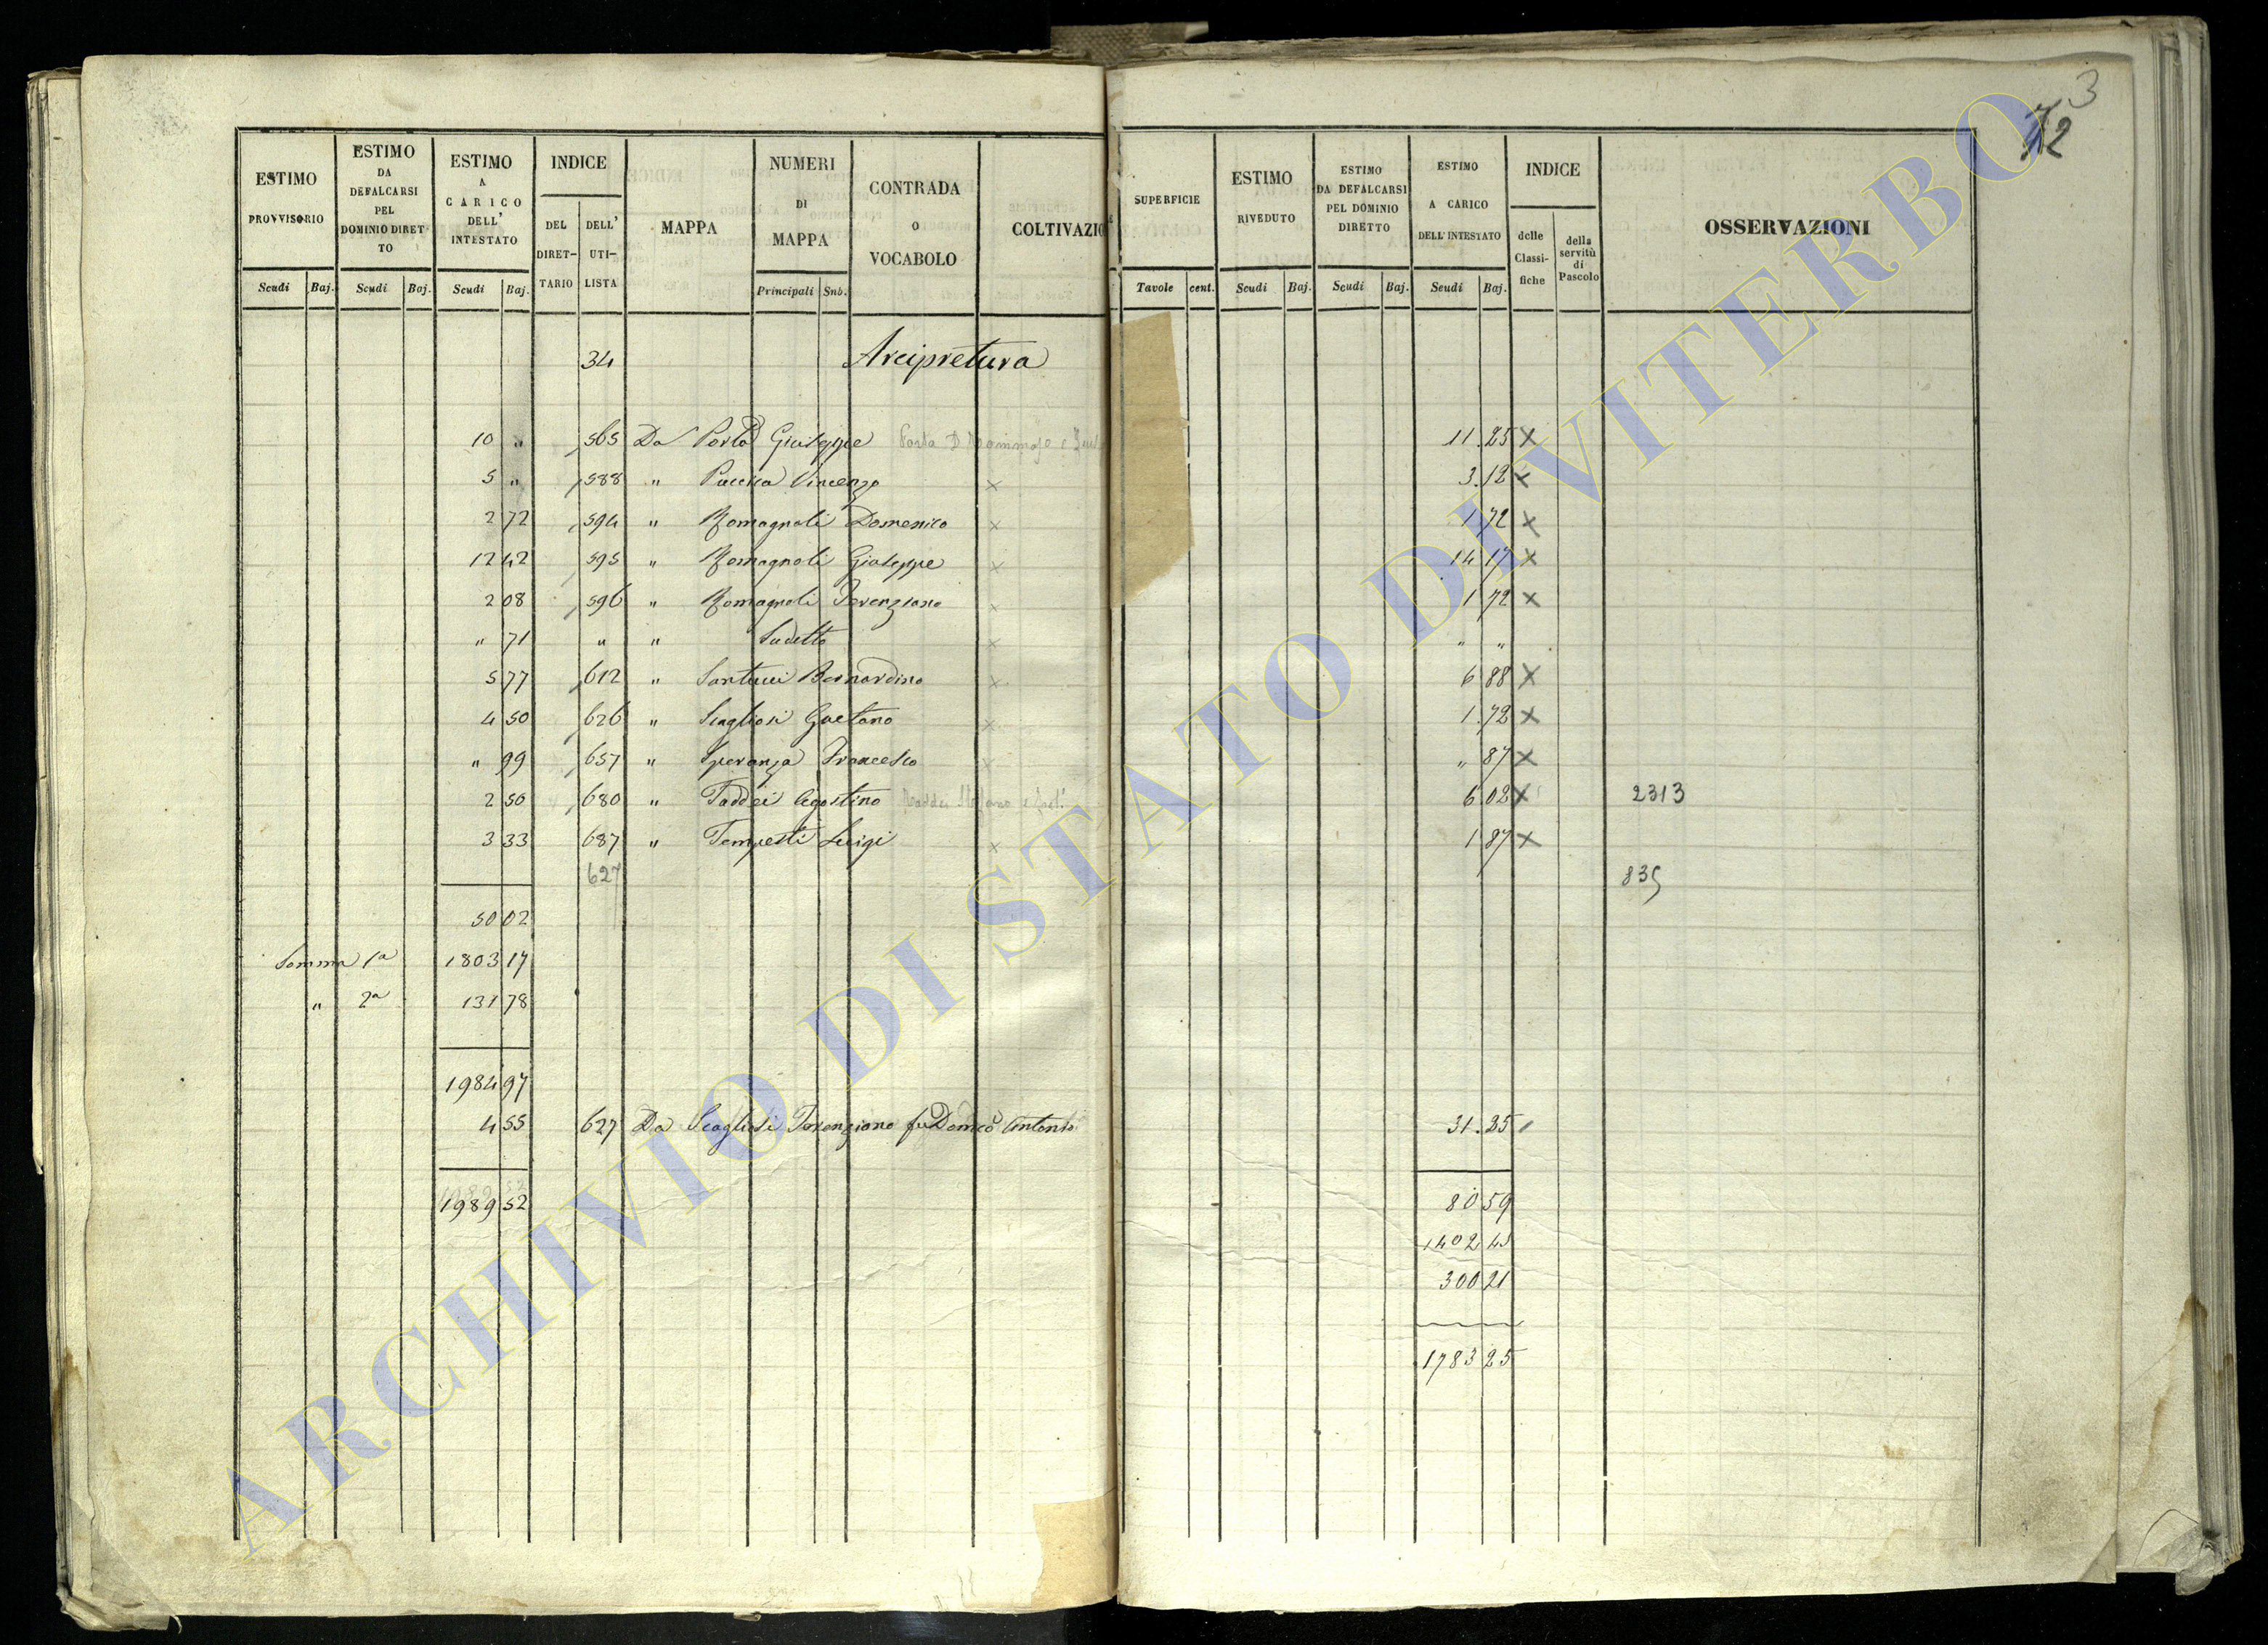 3
12
ESTIMO PROVVISORIO
ESTIMO DA DEFALCARSI PEL DOMINIO DIRETTO
ESTIMO A CARICO DELL' INTESTATO
INDICE
DEL DIRET-TARIO
DELL' UTI-LISTA
MAPPA
NUMERI DI MAPPA
CONTRADA o VOCABOLO
COLTIVAZIO
SUPERFICIE
ESTIMO RIVEDUTO
ESTIMO DA DEFALCARSI PEL DOMINIO DIRETTO
ESTIMO A CARICO DELL' INTESTATO
INDICE
delle Classi-fiche
della servitù di Pascolo
OSSERVAZIONI
Scudi Baj. Scudi Baj. Scudi Baj. Principali Sub. Tavole cent. Scudi Baj. Scudi Baj. Scudi Baj.
34 Arcipretura
10 " 565 Da Porta Giuseppe Porta D 11.25 X
5 " 588 " Puccica Vincenzo X 3.12 X
2 72 594 " Romagnoli Domenico X 1 72 X
12 42 595 " Romagnoli Giuseppe X 14 17 X
2 08 596 " Romagnoli Terenziano X 1 72 X
" 71 " " Sudetto X " "
5 77 612 " Santucci Bernardino X 6 88 X
4 50 626 " Scagliosi Gaetano X 1.72 X
" 99 657 " Speranza Francesco X " 87 X
2 50 680 " Taddei Agostino Taddei Stefano e 6 02 X 2313
3 33 687 " Tempesti Luigi X 1 87 X
627 835
50 02
Somma 1a 1803 17
" 2a 131 78
1984 97
4 55 627 Da Scagliosi Terenziano fu Domco Antonio 31.25
1989 52 80 59
1402 45
300 21
1783 25
ARCHIVIO DI STATO DI VITERBO